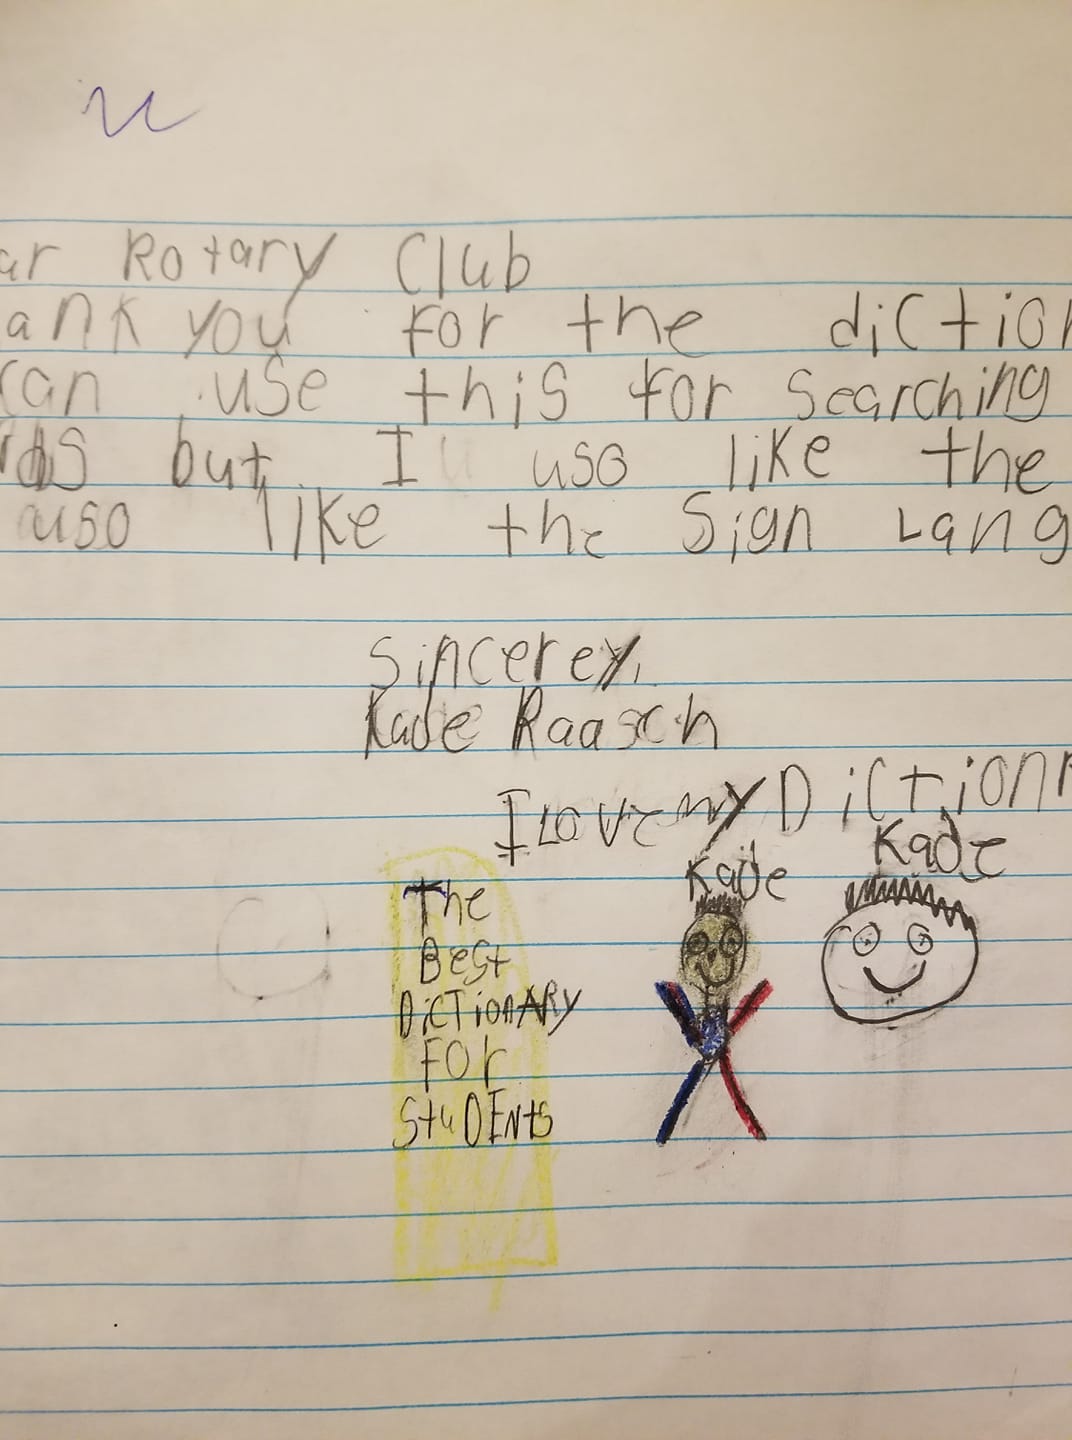 ar Rotary Club
ank you for the diction
can use this for searching
rds but I uso like the
auso like the Sign Lang
Sincerey,
Kade Raasch
I Love my Dictionr
Kade
Kade
The
Best
DicTionARY
For
StuDENts